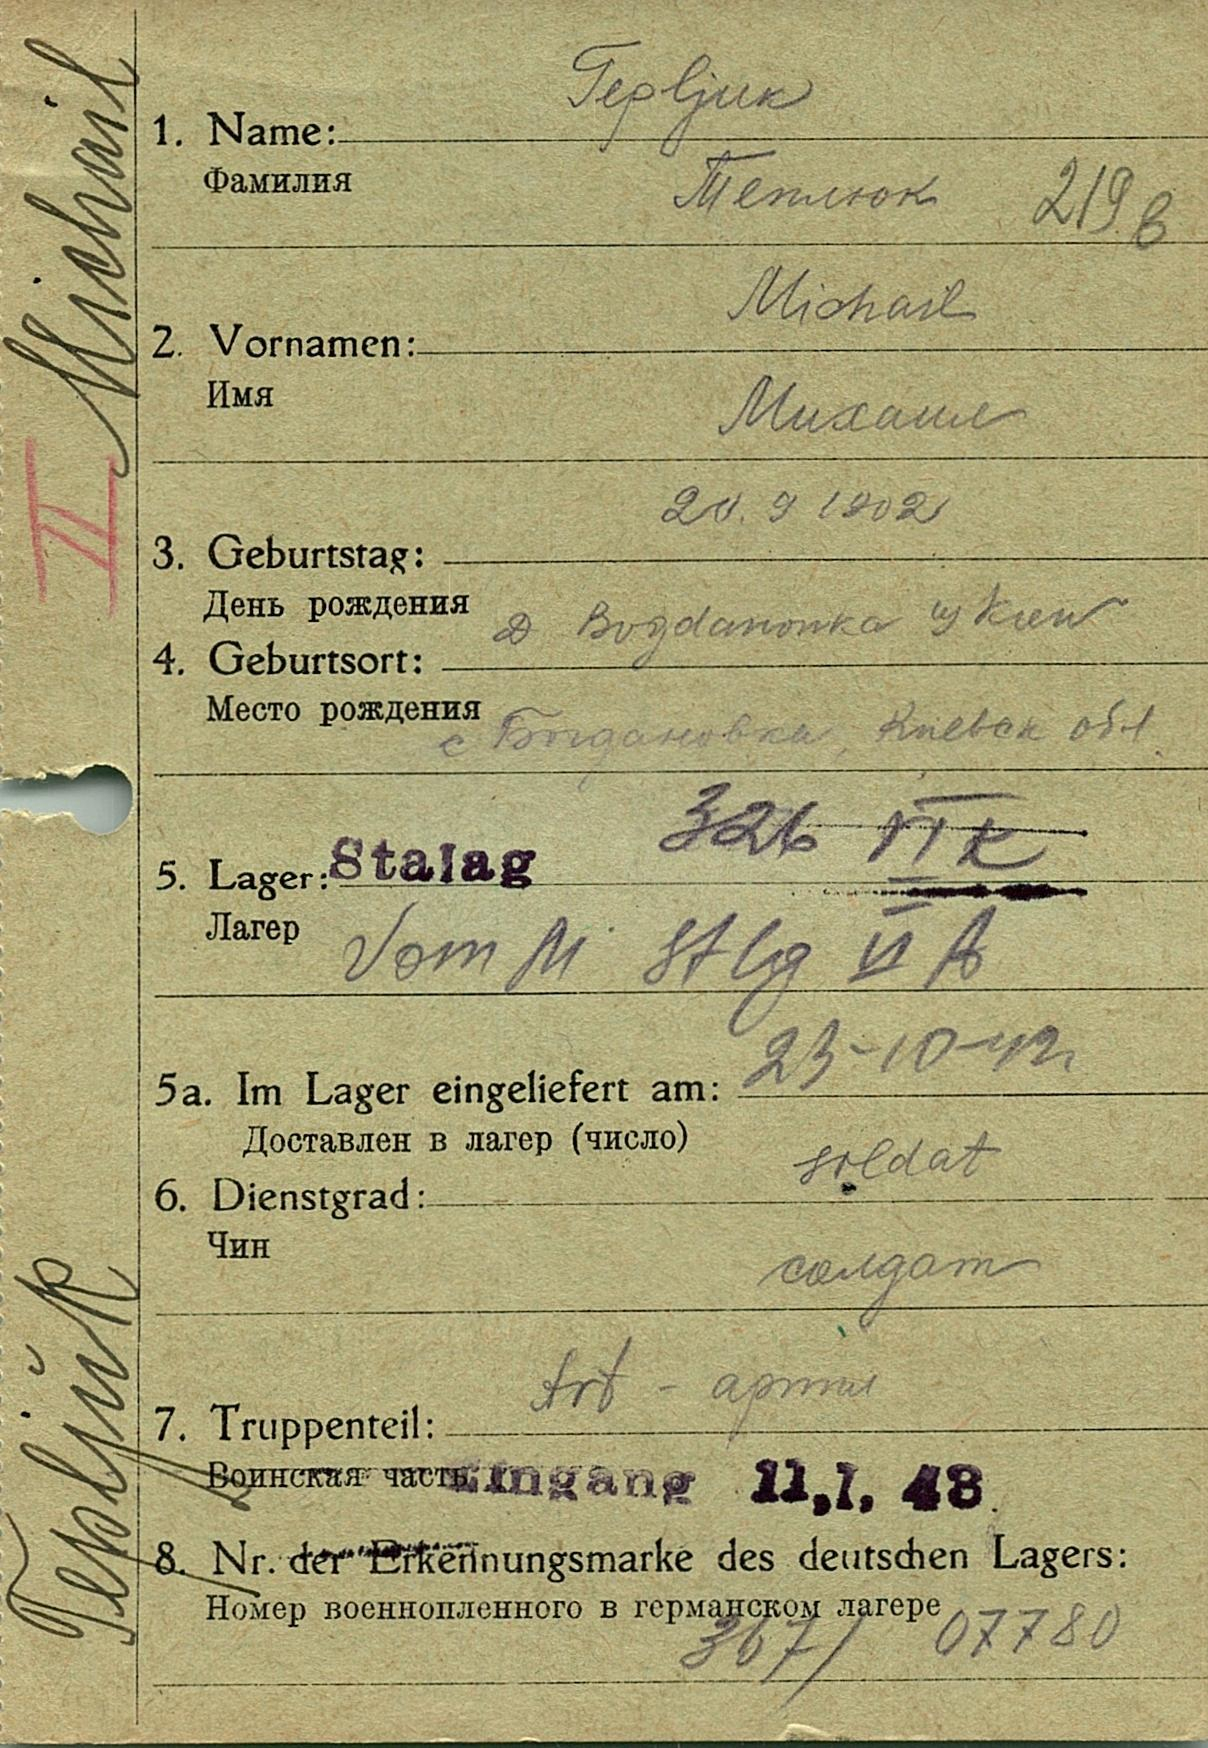 Tepljuk Michail
II
Tepljuk
1. Name:
Фамилия
Теплюк 219
Michail
2. Vornamen:
Имя
Михаил
20. 9 1902
3. Geburtstag:
День рождения
D Bogdanowka Kiew
4. Geburtsort:
Место рождения
с Богдановка, Киевск обл.
326 VI K
5. Lager: Stalag
Лагер
Vom M Stlg VI A
23-10-42
5a. Im Lager eingeliefert am:
Доставлен в лагер (число)
soldat
6. Dienstgrad:
Чин
солдат
Art - артил
7. Truppenteil:
Воинская часть
Eingang 11.1.43.
8. Nr. der Erkennungsmarke des deutschen Lagers:
Номер военнопленного в германском лагере
367/ 07780